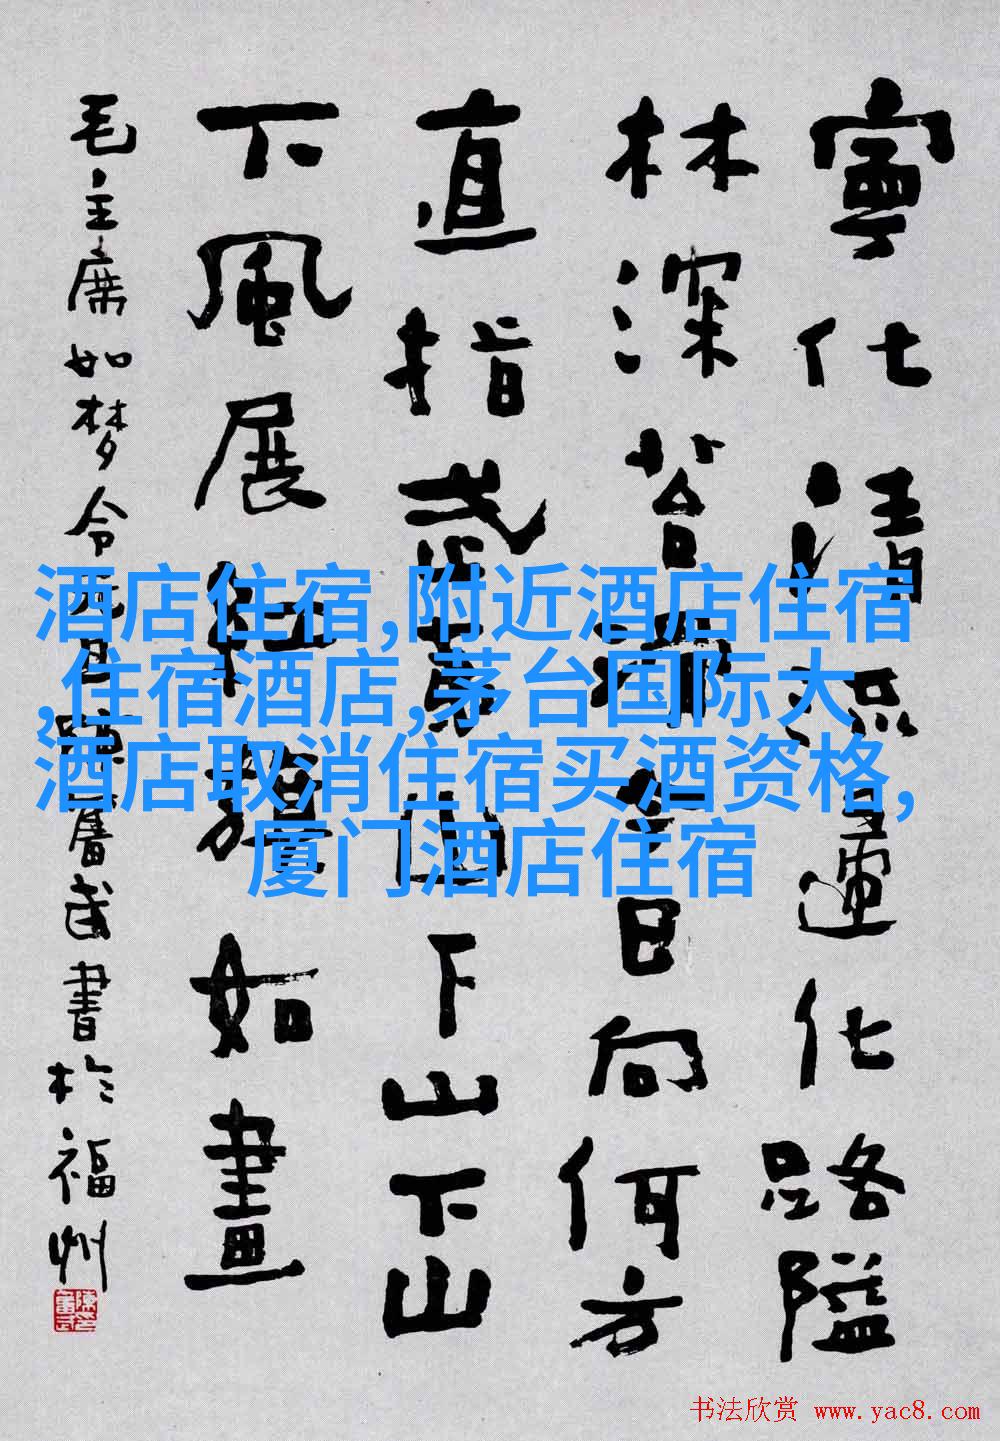 寧化清流歸化路隘
林深苔滑今日向何方
直指武夷山下山下山
下風展紅旗如畫
毛主席如梦令元旦陳奮武書於福州
酒店住宿,附近酒店住宿
,住宿酒店,茅台国际大
酒店取消住宿买酒资格,
厦门酒店住宿
书法欣赏 www.yac8.com